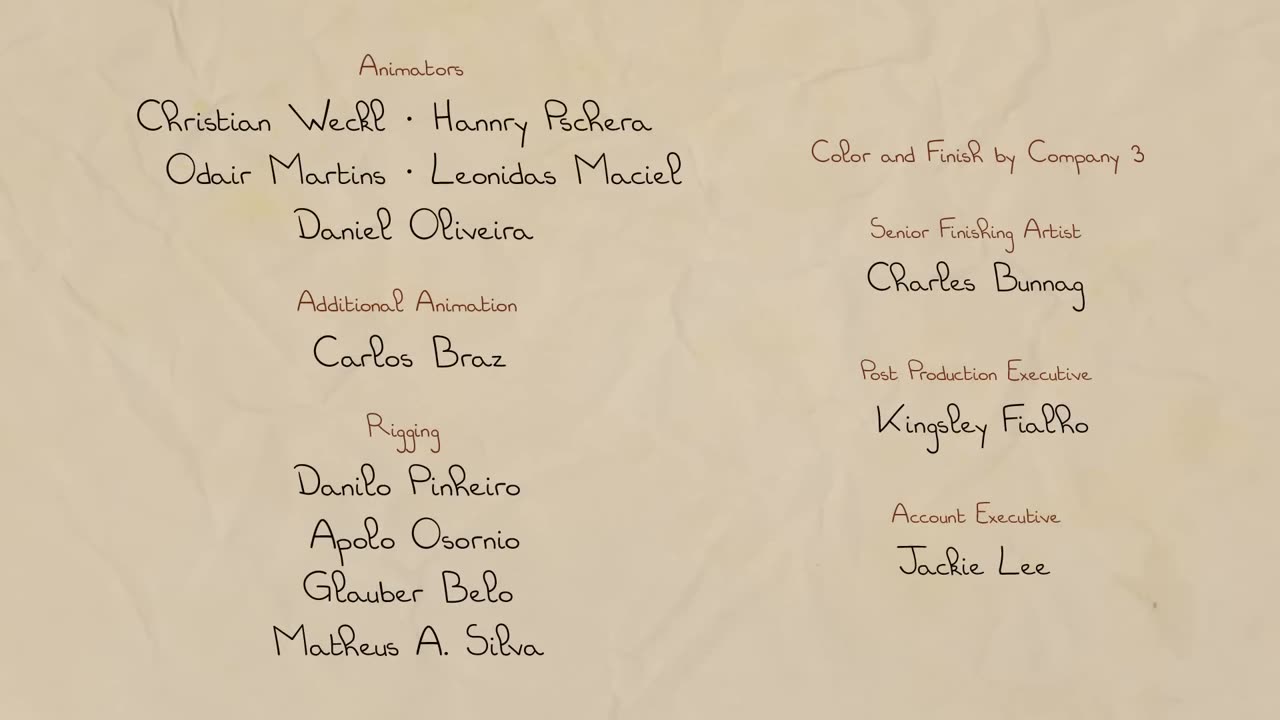 Animators
Christian Weckl • Hannry Pschera
Odair Martins • Leonidas Maciel
Daniel Oliveira
Additional Animation
Carlos Braz
Rigging
Danilo Pinheiro
Apolo Osornio
Glauber Belo
Matheus A. Silva
Color and Finish by Company 3
Senior Finishing Artist
Charles Bunnag
Post Production Executive
Kingsley Fialho
Account Executive
Jackie Lee